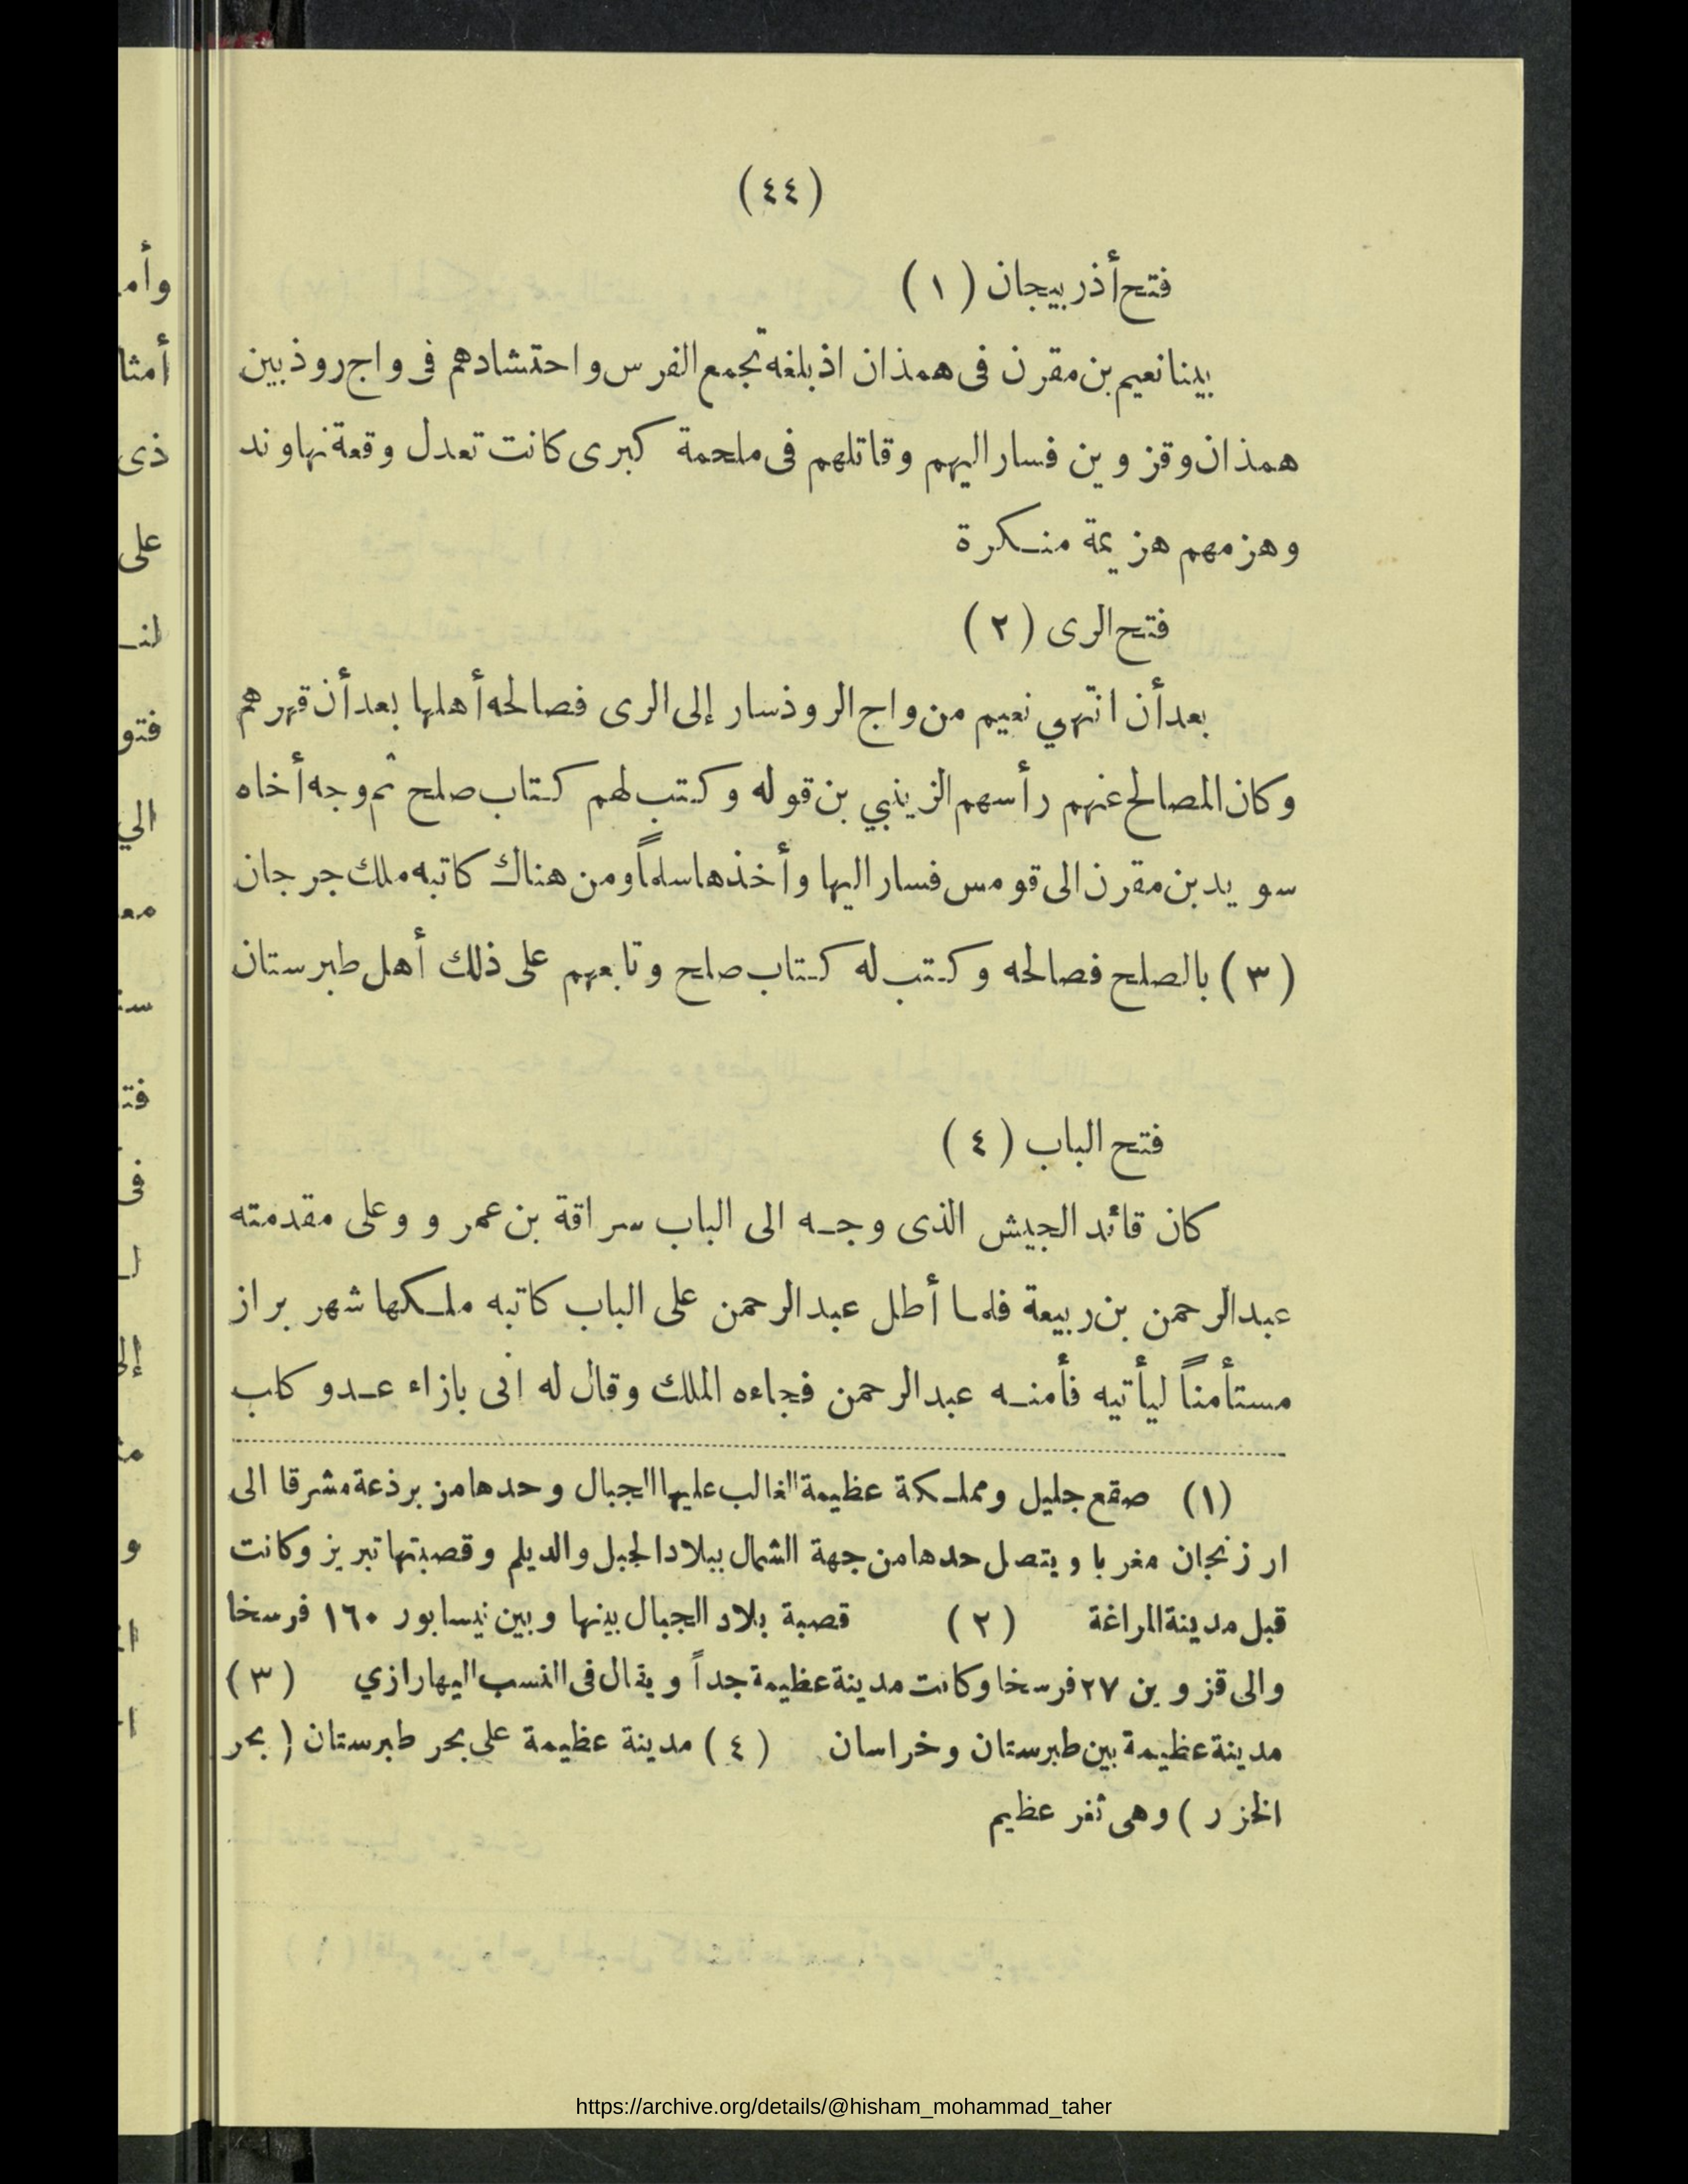 (٤٤)
فتح أذربيجان (١)
بينا نعيم بن مقرن فى همذان اذ بلغه تجمع الفرس واحتشادهم فى واج روذ بين
همذان وقزوين فسار اليهم وقاتلهم فى ملحمة كبرى كانت تعدل وقعة نهاوند
وهزمهم هزيمة منكرة
فتح الرى (٢)
بعد أن انتهي نعيم من واج الروذ سار إلى الرى فصالحه أهلها بعد أن قهرهم
وكان المصالح عنهم رأسهم الزينبي بن قوله وكتب لهم كتاب صلح ثم وجه أخاه
سويد بن مقرن الى قومس فسار اليها وأخذها سلماً ومن هناك كاتبه ملك جرجان
(٣) بالصلح فصالحه وكتب له كتاب صلح وتابعهم على ذلك أهل طبرستان
فتح الباب (٤)
كان قائد الجيش الذى وجه الى الباب سراقة بن عمرو وعلى مقدمته
عبد الرحمن بن ربيعة فلما أطل عبد الرحمن على الباب كاتبه ملكها شهر براز
مستأمناً ليأتيه فأمنه عبد الرحمن فجاءه الملك وقال له انى بازاء عدو كلب
(١) صقع جليل ومملكة عظيمة الغالب عليها الجبال وحدها من برذعة مشرقا الى
ارزنجان مغربا ويتصل حدها من جهة الشمال ببلاد الجبل والديلم وقصبتها تبريز وكانت
قبل مدينة المراغة (٢) قصبة بلاد الجبال بينها وبين نيسابور ١٦٠ فرسخا
والى قزوين ٢٧ فرسخا وكانت مدينة عظيمة جداً ويقال فى النسب اليها رازي (٣)
مدينة عظيمة بين طبرستان وخراسان (٤) مدينة عظيمة على بحر طبرستان (بحر
الخزر) وهى ثغر عظيم
https://archive.org/details/@hisham_mohammad_taher